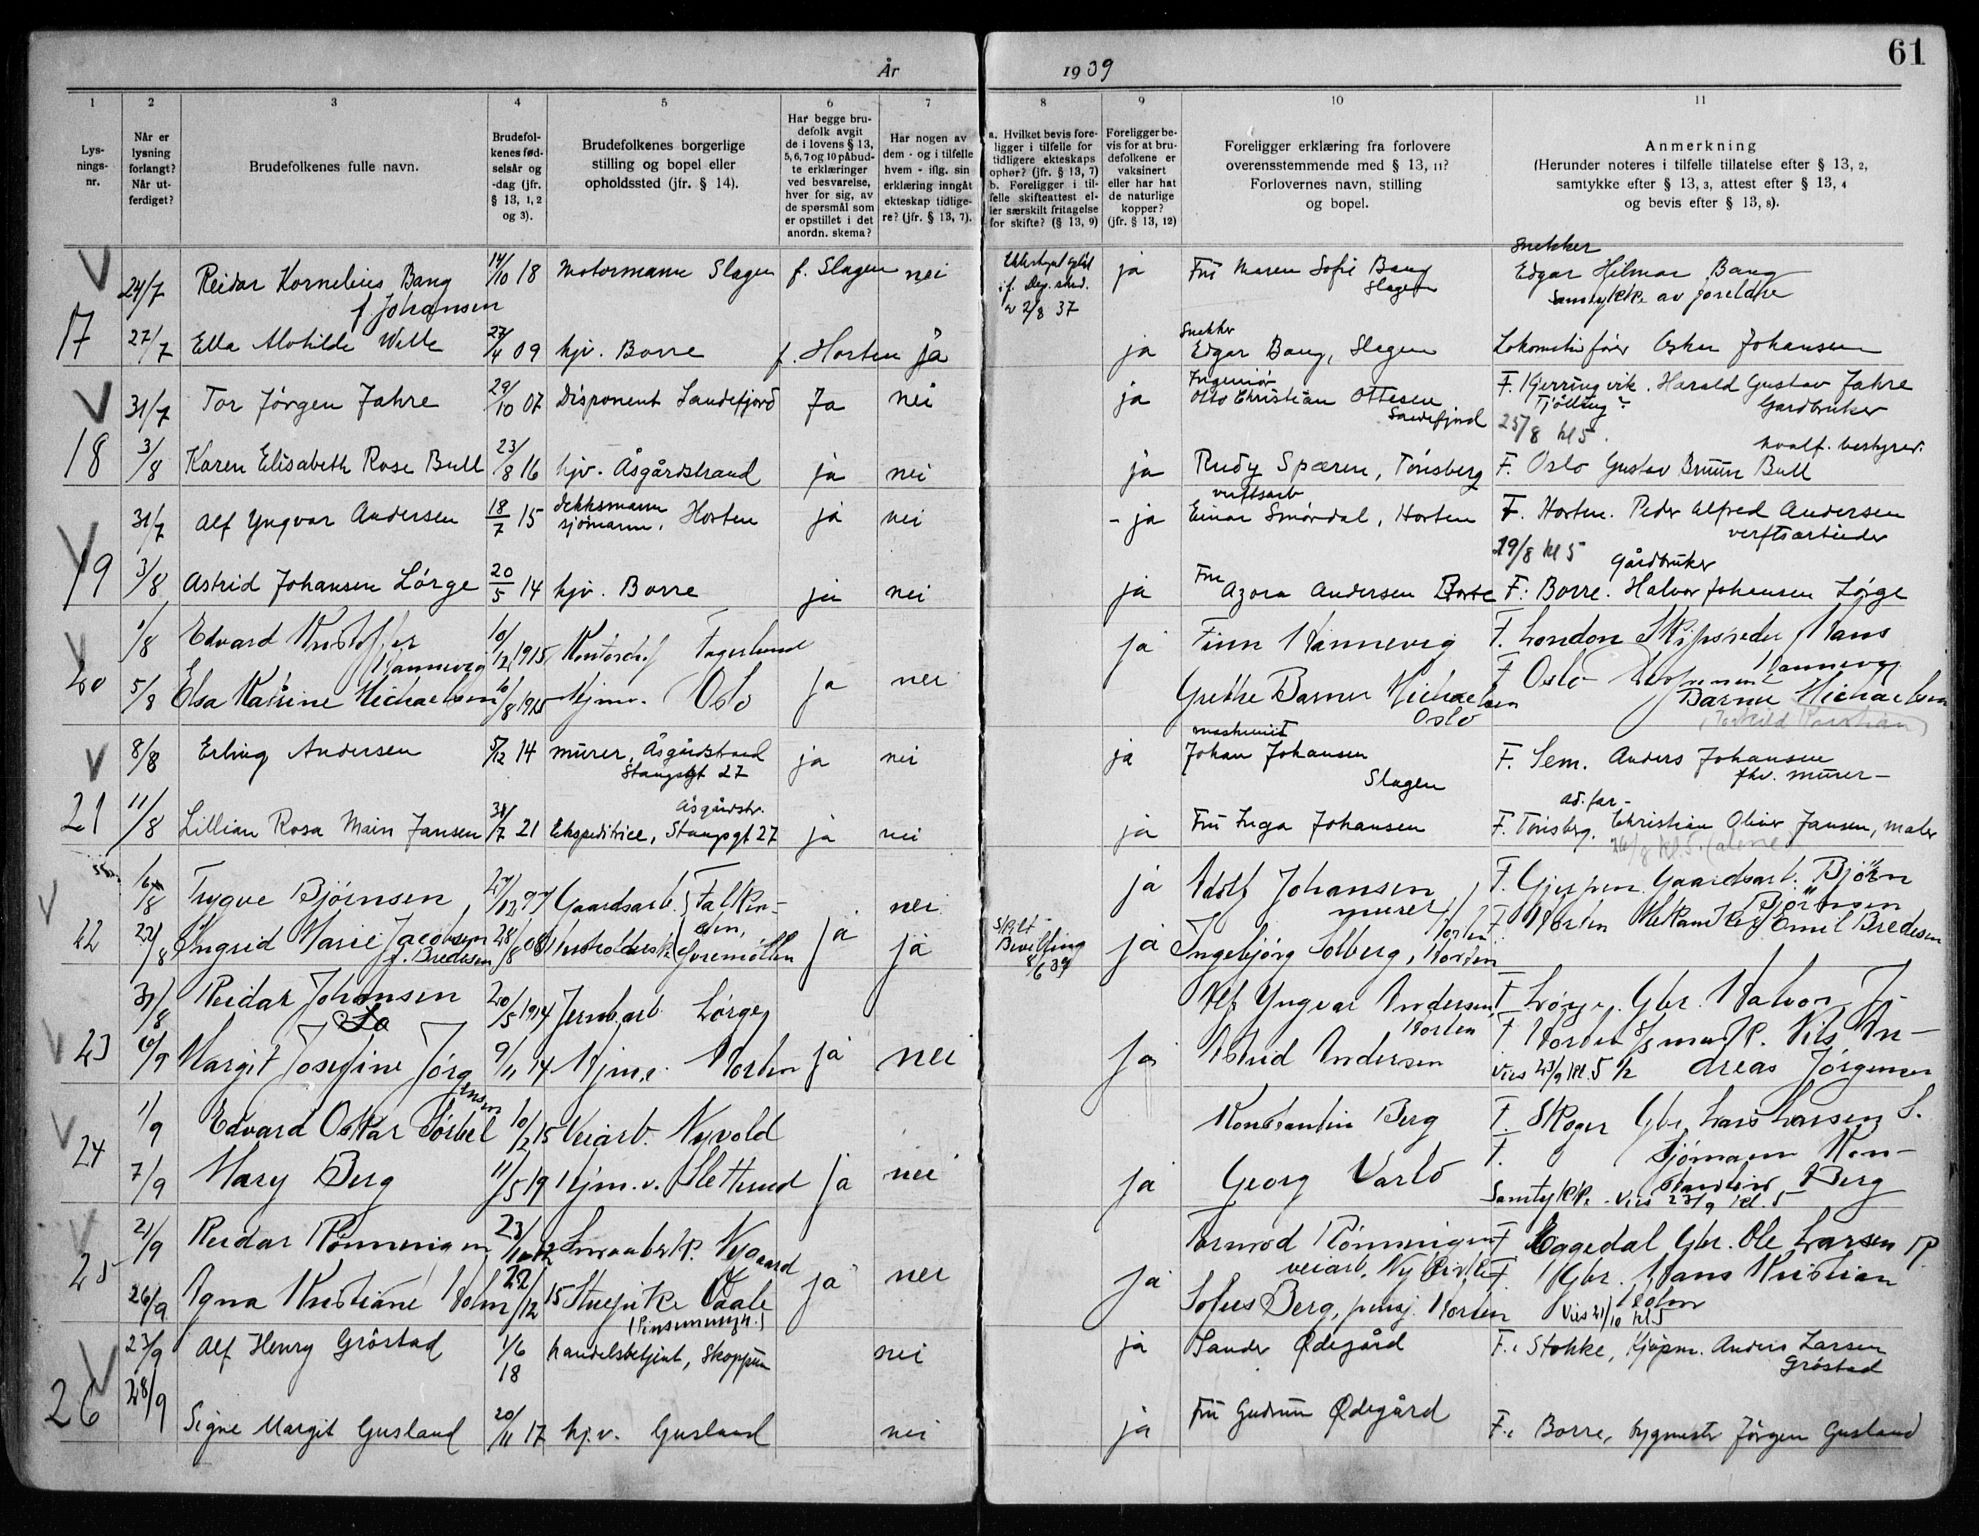 År 1939
61
1 2 3 4 5 6 7 8 9 10 11
Lys-
nings-
nr.
Når er
lysning
forlangt?
Når ut-
ferdiget?
Brudefolkenes fulle navn.
Brudefol-
kenes fød-
selsår og
-dag (jfr.
§ 13, 1, 2
og 3).
Brudefolkenes borgerlige
stilling og bopel eller
opholdssted (jfr. § 14).
Har begge bru-
defolk avgit
de i lovens § 13,
5, 6, 7 og 10 påbud-
te erklæringer
ved besvarelse,
hver for sig, av
de spørsmål som
er opstillet i det
anordn. skema?
Har nogen av
dem - og i tilfelle
hvem - iflg. sin
erklæring inngåt
ekteskap tidlige-
re? (jfr. § 13, 7).
a. Hvilket bevis fore-
ligger i tilfelle for
tidligere ekteskaps
ophør? (jfr. § 13, 7)
b. Foreligger i til-
felle skifteattest el-
ler særskilt fritagelse
for skifte? (§ 13, 9)
Foreligger be-
vis for at bru-
defolkene er
vaksinert
eller har hat
de naturlige
kopper?
(jfr. § 13, 12)
Foreligger erklæring fra forlovere
overensstemmende med § 13, 11?
Forlovernes navn, stilling
og bopel.
Anmerkning
(Herunder noteres i tilfelle tillatelse efter § 13, 2,
samtykke efter § 13, 3, attest efter § 13, 4
og bevis efter § 13, 8).
17
24/7 Reidar Kornelius Bang 14/10 18 Motormann Slagen f. Slagen nei
2/8 37
ja Fru Maren Sofie Bang
Slagen
Snekker
Edgar Hilmar Bang
Samtykke av foreldre
f Johansen
27/7 Ella Motilde Wille 27/4 09 hjv. Borre f. Horten ja
ja Snekker
Edgar Bang, Slagen Lokomotivfører Oskar Johansen
18
31/7 Tor Jörgen Jahre 29/10 07 Disponent Sandefjord Ja nei
ja Ingeniør
Otto Christian Ottesen
Sandefjord
F. Kjerringvik. Harald Gustav Jahre
Tjölling? Gardbruker
25/8 kl 5.
3/8 Karen Elisabeth Rose Bull 23/8 16 hjv. Åsgårdstrand ja nei
ja Rudy Spæren, Tönsberg
hvalf. bestyrer.
F. Oslo Gustav Bruun Bull
19
31/7 Alf Yngvar Andersen 18/7 15 dekksmann
sjömann, Horten ja nei
- ja verftsarb
Einar Smördal, Horten F. Horten. Peder Alfred Andersen
verftsarbeider
19/8 kl 5
3/8 Astrid Johansen Lörge 20/5 14 hjv. Borre ja nei
ja Fru Azora Andersen Borre
Gårdbruker
F. Borre. Halvor Johansen Lörge
20
1/8 Edvard Kristoffer
Hannevig 10/12 1915 Kontorch. Fagerlund
ja Finn Hannevig F. London Skipsreder Hans
Hannevig
5/8 Elsa Katrine Michaelsen 6/8 1915 Hjmv. Oslo ja nei
Grethe Barner Michaelsen
Oslo
F Oslo
Barner Michaelsen
21
8/8 Erling Andersen 5/12 14 murer, Åsgårdstrand
Stangsgt 27 ja nei
ja maskinist
Johan Johansen
Slagen
F. Sem. Anders Johansen
fhv. murer-
11/8 Lillian Rosa Main Jansen 31/7 21 Ekspeditrice, Åsgårdstr.
Stangsgt 27 ja nei
ja Fru Inga Johansen
ad. far-
F. Tönsberg. Christian Oliver Jansen, maler
26/8 kl. 5. (alene)
22
16/8 Trygve Björnsen 27/12 97 Gaardsarb. Falken-
sten, nei
ja Adolf Johansen
murer, Horten
F. Gjerpen Gaardsarb. Björn
Björnsen
22/8 Ingrid Marie Jacobsen
f. Bredesen 28/8 08 Husholderske Goremöllen ja ja
Skilt
Bevilling
8/6 39
ja Ingebjörg Solberg, Horten
F Horten Mekaniker Emil Bredesen
23
31/8 Reidar Johansen
Lö 20/5 1914 Jernarb. Lörge,
Alf Yngvar Andersen
Horten
F. Lörge, Gbr. Halvor J-
6/9 Margit Josefine Jörg
ensen 9/11 14 Hjmv. Horten ja nei
ja Astrid Andersen
F Horten Nils An-
Vies 23/9 kl. 5 1/2 dreas Jörgensen
24
1/9 Edvard Oskar Sörbel 10/2 15 Veiarb. Nyvold
Konstantin Berg F. Skoger Gbr. Lars Larsen S.
7/9 Mary Berg 11/5 19 Hjm.v. Sletterud ja nei
ja Georg Varlo
F. Sjömann Kon-
stantin Berg
Samtykke. Vies 23/9 kl. 5
25
21/9 Reidar Rönningen 23/10 12 Smaabrk. Nygaard
Tormod Rönningen
veiarb. Nykirke
F Eggedal Gbr. Ole Larsen R.
26/9 Agna Kristiane Holm 22/12 15 Stuepike Vaale ja nei
ja Sofus Berg, pensj. Horten
F. Gbr. Hans Kristian
Holm
Vies 21/10 kl 5
26
23/9 Alf Henry Gröstad 1/6
18 handelsbetjent, Skoppum nei
ja Sander Ödegård F., Stokke, Kjöpm. Anders Larsen
Gröstad
28/9 Signe Margit Gusland 20/11 17 hj.v. Gusland nei
ja Fru Gudrun Ödegård F., Borre, bygmestr Jörgen Gusland